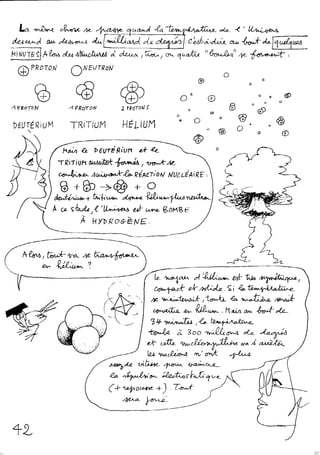 La même chose se passe quand la température de l'Univers
descend au dessous du milliard de degrés. C'est-à-dire au bout de quelques
MINUTES. Alors des structures à deux, trois, ou quatre "boules" se forment.
PROTON
NEUTRON
1 PROTON
1 PROTON
2 PROTONS
DEUTÉRIUM
TRITIUM
HÉLIUM
Mais le DEUTÉRIUM et le
TRITIUM formés, vont se
combiner suivant la RÉACTION NUCLÉAIRE:
+ → +
deutérium + tritium donne Hélium plus neutron
A ce stade, l'Univers est une BOMBE
À HYDROGÈNE.
Alors, tout va se transformer
en hélium ?
Le noyau d'hélium est très symétrique,
compact et solide. Si la température
se maintenait, toute la matière serait
convertie en hélium. Mais au bout de
34 minutes, la température
tombe à 300 millions de degrés
et cette nucléosynthèse va s'arrêter.
les nucléons n'ont plus
assez de vitesse pour vaincre
la répulsion électrostatique
(+ repousse +) Tout
sera joué.
42